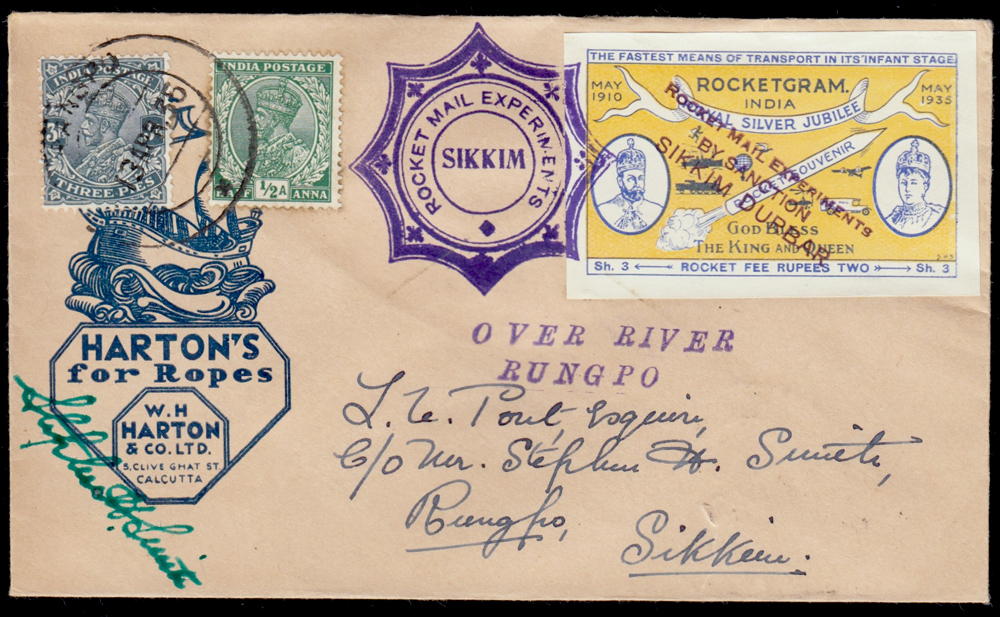 INDIA POSTAGE
3
Ps
THREE PIES
INDIA POSTAGE
½A
ANNA
ROCKET MAIL EXPERIMENTS
SIKKIM
THE FASTEST MEANS OF TRANSPORT IN ITS'INFANT STAGE
MAY
1910
ROCKETGRAM.
INDIA
MAY
1935
ROYAL SILVER JUBILEE
ROCKET SOUVENIR
GOD BLESS
THE KING AND QUEEN
Sh. 3
ROCKET FEE RUPEES TWO
Sh. 3
ROCKET MAIL EXPERIMENTS
BY SANCTION
SIKKIM DURBAR
HARTON'S
for Ropes
W.H
HARTON
& CO. LTD.
5, CLIVE GHAT ST.
CALCUTTA
Stephen H. Smith
OVER RIVER
RUNGPO
L. E. Pont, Esquire,
C/O Mr. Stephen H. Smith,
Rungpo,
Sikkim.